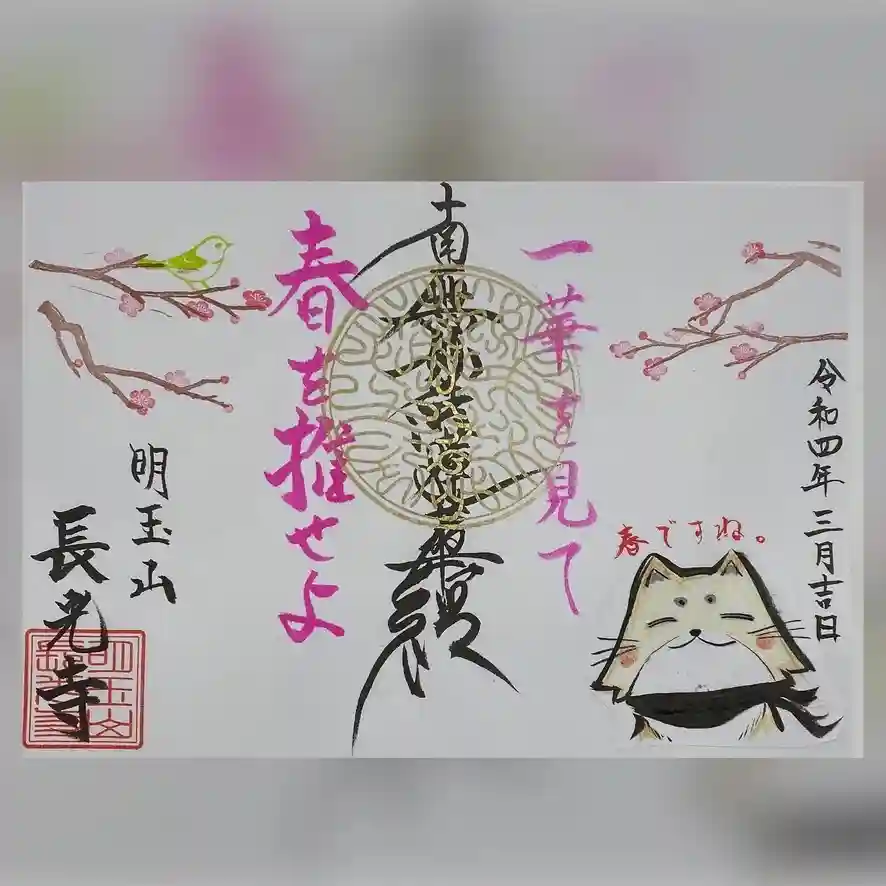 令和四年三月吉日
春ですね。
一華を見て
南無妙法蓮華経
春を推せよ
明玉山
長光寺